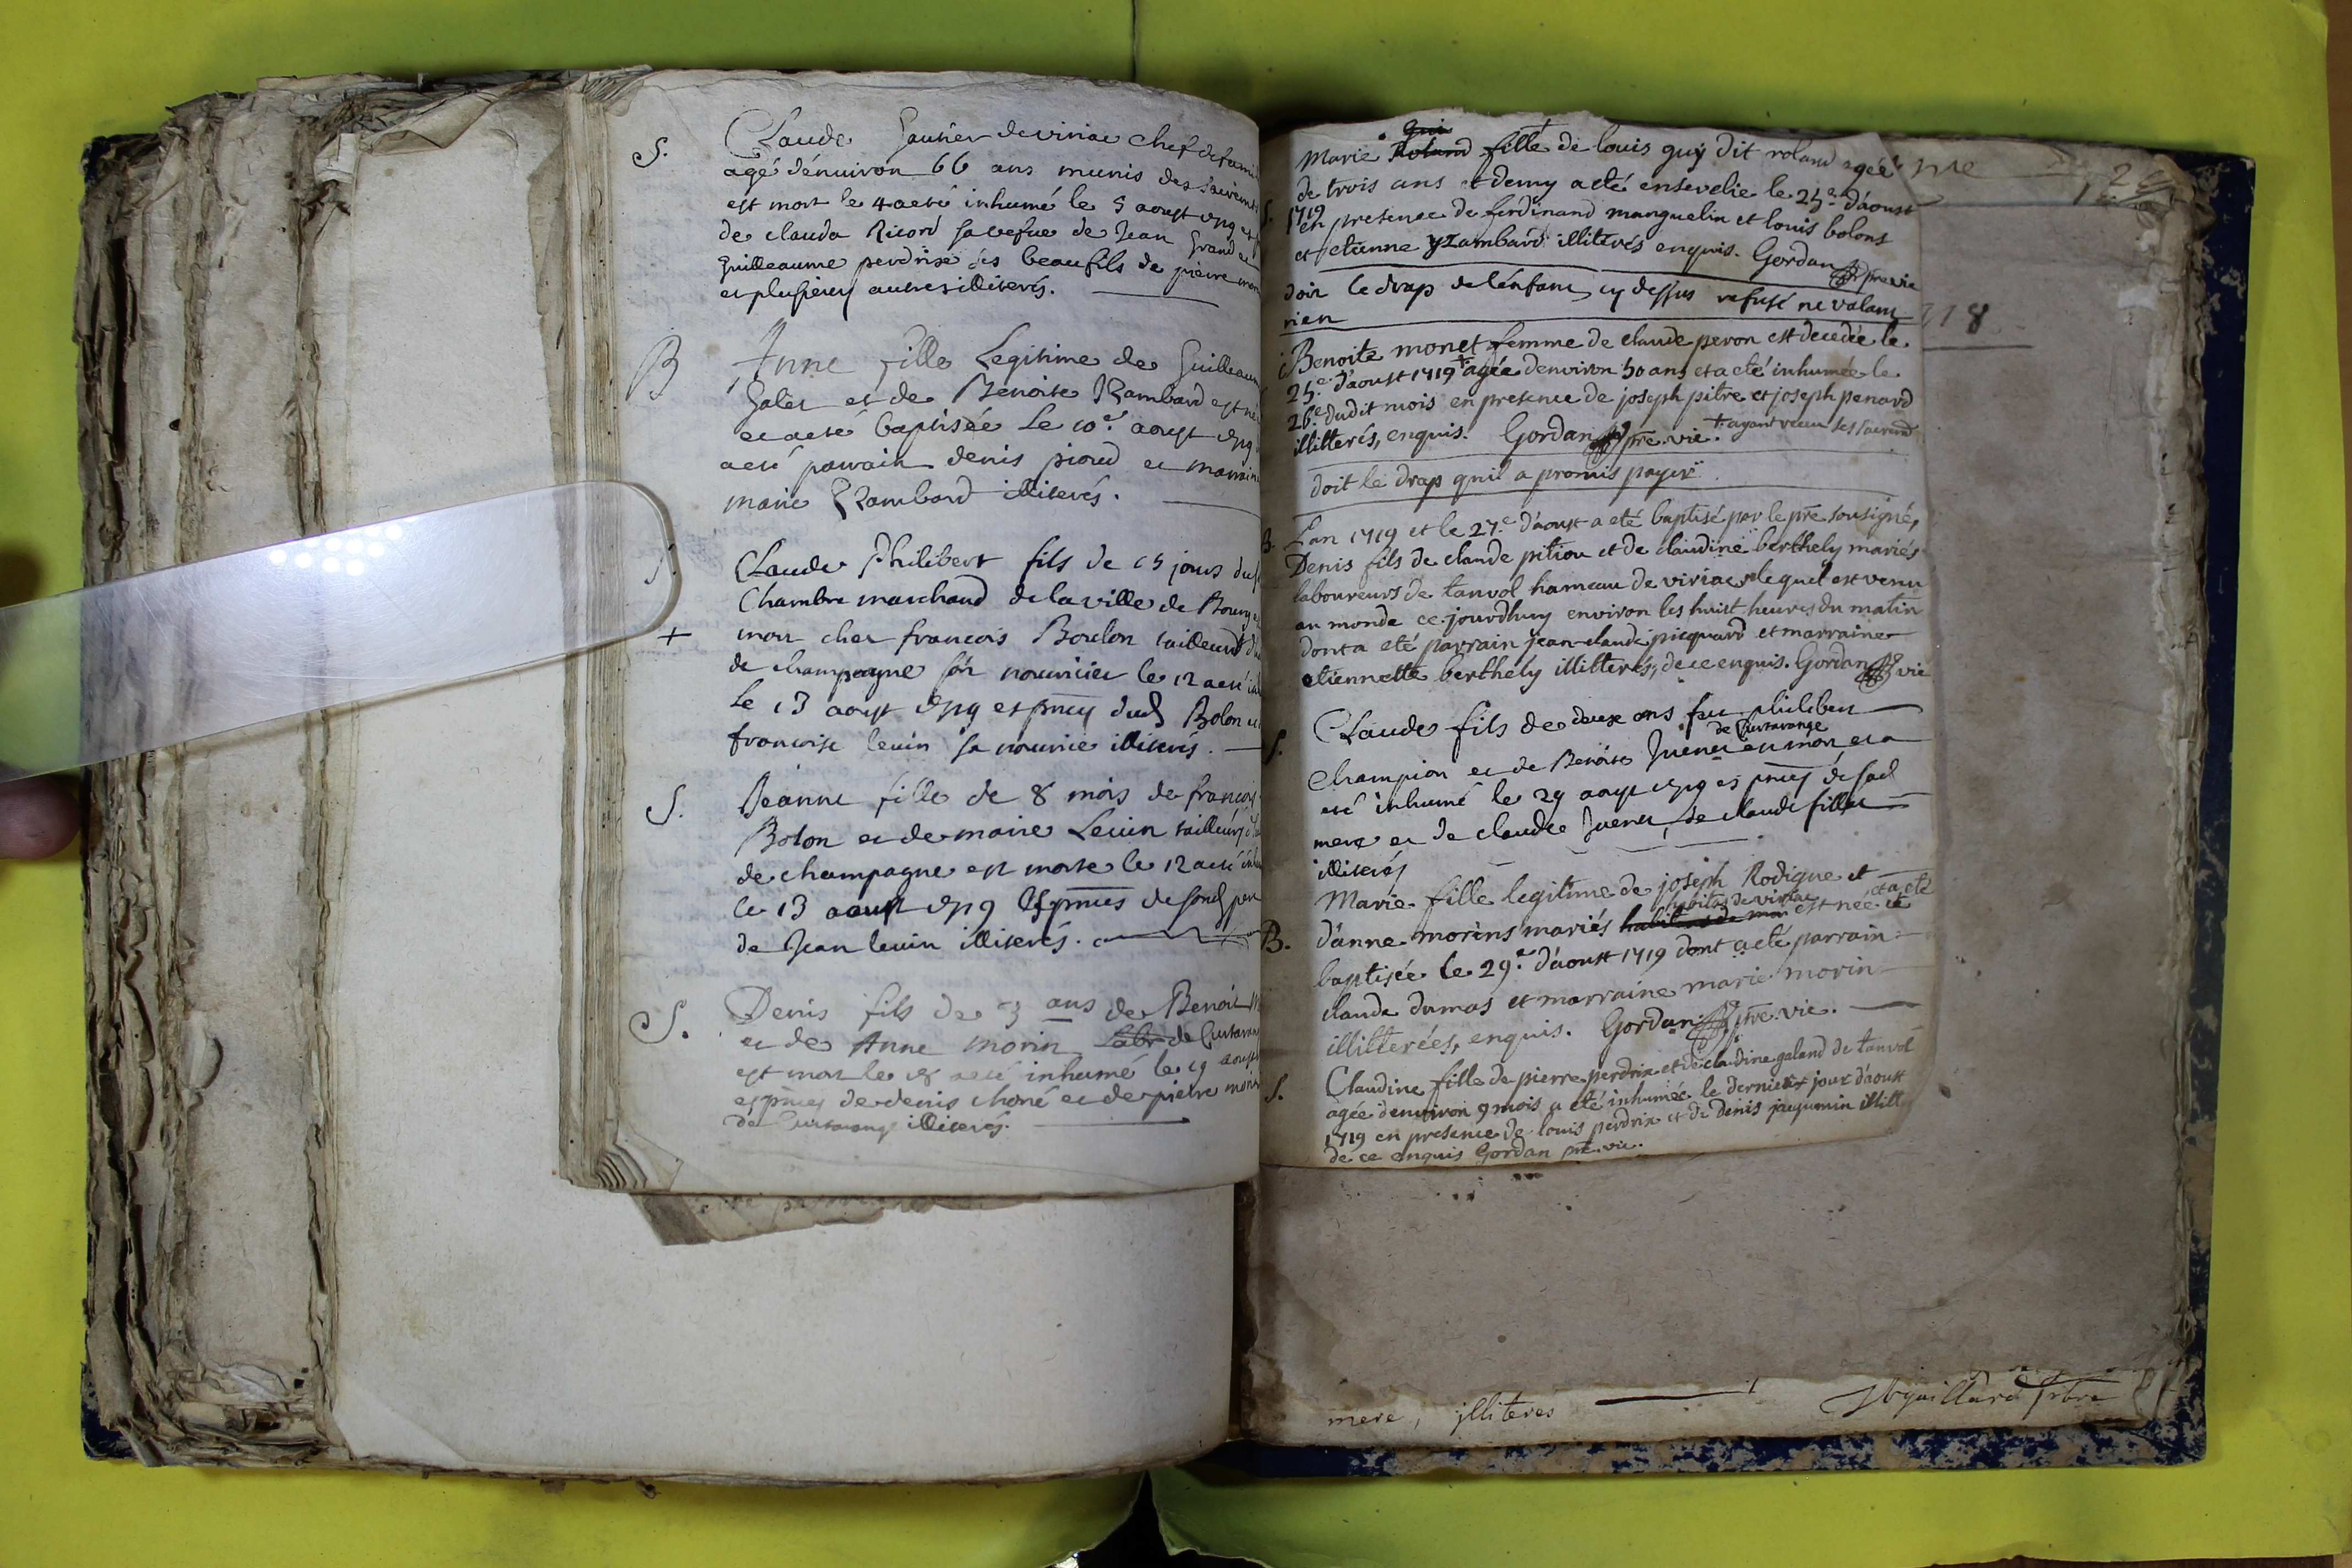 S. Claude Gautier de viriac chef de famil
agé d'énuiron 66 ans munis des sacrem
est mort le 4 a esté inhumé le 5 aoust 1719 et
de clauda Ricord sa vefue de Jean Grand et
Guilleaume perdrix ses beaufils de pierre
et plusieurs autres illiterés.
B Anne fille Legitime de Guilleaum
et de Benoite Rambard est né
et a esté baptisée Le 10e. aoust 1719
a esté parrain denis pioud et marraine
marie Rambard illiterés.
S. Claude Philibert fils de 15 jours du
Chambre marchand de la ville de Bourg e
+ mort chez francois Boulon tailleur d
de champagne son nouricier le 12 a esté in
Le 13 aoust 1719 es pnces dud Bolon et
francoise leuin sa nourice illiterés.
S. Jeanne fille de 8 mois de francois
Bolon et de marie Leuin tailleurs
de champagne est morte le 12 a esté inhu
le 13 aoust 1719 es pnces de sond pere
de Jean leuin illiterés.
S. Denis fils de 3 ans de Benoit
et de Anne morin de Curtaran
est mort le 18 a esté inhumé le 19 aoust
es pnces de denis choné et de pierre morin
de Curtarange illiterés.
nre
12
218
gui
Marie Roland fille de louis guÿ dit roland agéé
de trois ans et demy a eté ensevelie le 25e. d'aoust
S. 1719
en presence de ferdinand manguelin et louis bolons
et etienne yzambard illiterés enquis. Gordan pre vie
doit le drap de l'énfant cy dessus refusé ne valant
rien
Benoite monet femme de claude peron est decedée le
25e. d'aoust 1719 + agée d'environ 50 ans et a eté inhumée le
26e. dudit mois en presence de joseph pitre et joseph penard
illitterés, enquis. Gordan pre. vie. + ayant receu les sacrem
doit le drap qu'il a promis payer
B. L'an 1719 et le 27e d'aoust a eté baptisé par le pre sousigné,
Denis fils de claude pitiou et de claudine berthely mariés
laboureurs de tanvol hameau de viriac, lequel est venu
au monde ce-jourd'huy environ les huit heures du matin
dont a eté parrain jean-claude picquard et marraine
etiennette berthely illitterés, de ce enquis. Gordan vie
S. Claude fils de deux ans feu philibert
de Curtarange
Champion et de Benoite Juenet est mort et a
esté inhumé le 29 aoust 1719 es pnces de sad
mere et de claudce Juenet, de claude fillet
illiterés
Marie fille legitime de joseph Rodigue et
habitas de viriac et a eté
B. d'anne morins mariés habitans de est née et
baptisée le 29e. d'aoust 1719 dont a eté parrain
claude dumas et marraine marie morin
illitterées, enquis. Gordan pre. vie.
S. Claudine fille de pierre perdrix et de claudine galand de tanvol
agée d'environ 9 mois a eté inhumée le dernier jour d'aoust
1719 en presence de louis perdrix et de denis jacquemin illitt
de ce enquis Gordan pre. vie.
mere, jlliteres